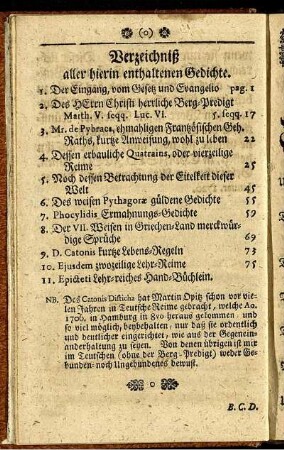 (0)
Verzeichniß
aller hierin enthaltenen Gedichte.
1. Der Eingang, vom Gesetz und Evangelio pag. 1
2. Des HErrn Christi herrliche Berg-Predigt
Matth. V. seqq. Luc. VI. 5. seqq. 17
3. Mr. de Pybrac, ehmahligen Frantzösischen Geh.
Raths, kurtze Anweisung, wohl zu leben 22
4. Dessen erbauliche Quatrains, oder vierzeilige
Reime 25
5. Noch dessen Betrachtung der Eitelkeit dieser
Welt 45
6. Des weisen Pythagoræ güldene Gedichte 55
7. Phocylidis Ermahnungs-Gedichte 59
8. Der VII. Weisen in Griechen-Land merckwür-
dige Sprüche 69
9. D. Catonis kurtze Lebens-Regeln 73
10. Ejusdem zwozeilige Lehr-Reime 75
11. Epicteti Lehr-reiches Hand-Büchlein.
NB. Des Catonis Disticha hat Martin Opitz schon vor vie-
len Jahren in Teutsche Reime gebracht, welche Ao.
1706. in Hamburg in 8vo heraus gekommen, und
so viel möglich, beybehalten, nur daß sie ordentlich
und deutlicher eingerichtet, wie aus der Gegenein-
anderhaltung zu sehen. Von denen übrigen ist mir
im Teutschen (ohne der Berg-Predigt) weder Ge-
bunden- noch Ungebundenes bewust.
0
B. C. D.